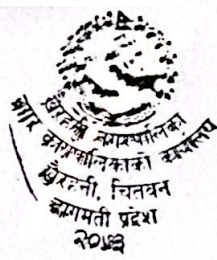 खैरहनी नगरपालिका
नगर कार्यपालिकाको कार्यालय
खैरहनी, चितवन
बागमती प्रदेश
२०५३